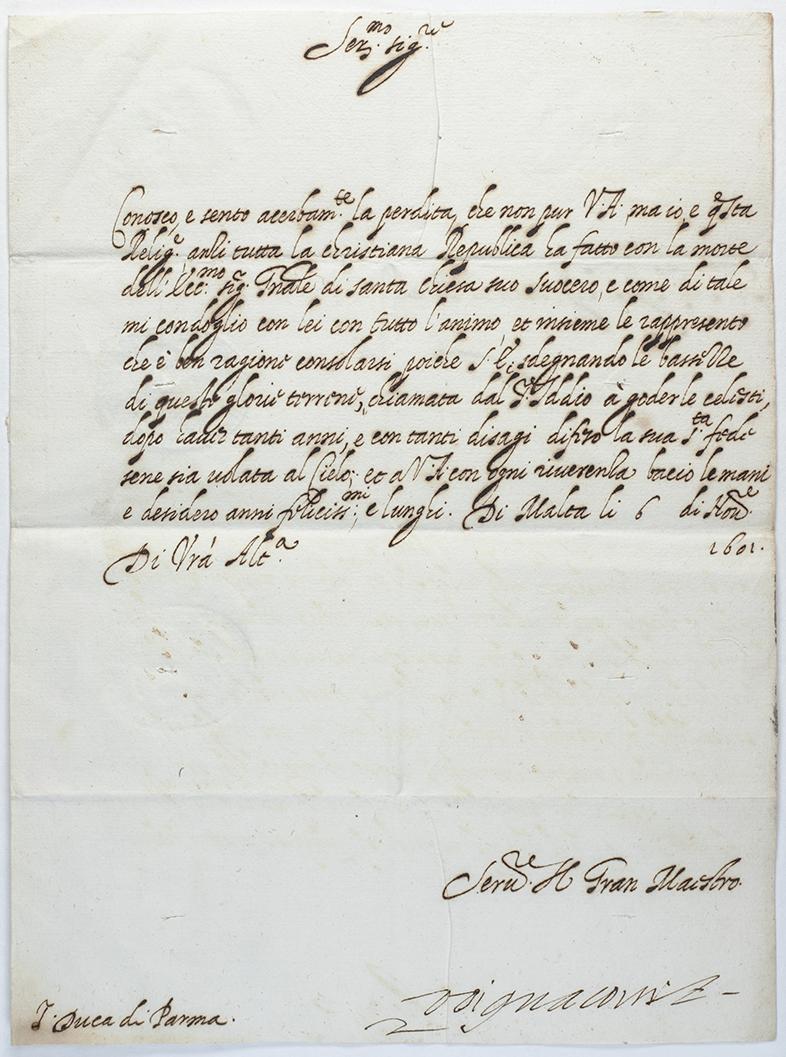 Ser.mo sig.re
Conosco, e sento acerbam.te la perdita, che non pur V.A. ma io, e q̃sta
Relig.e anzi tutta la christiana Republica ha fatto con la morte
dell'Ecc.mo sig.r Gñale di santa chiesa suo suocero, e come di tale
mi condoglio con lei con tutto l'animo, et insieme le rappresento
che è ben ragione consolarsi poiche S.E. sdegnando le bassezze
di queste glorie terrene, chiamata dal S.r Iddio à goder le celesti,
dopo haver tanti anni, e con tanti disagi difeso la sua s.ta fede
sene sia volata al Cielo; et a V.A. con ogni riverenza bacio le mani
e desidero anni feliciss.mi, e lunghi. Di Malta li 6 di Nov.e
1601.
Di Vrã Alt.a
Serv.re Il Gran Maestro.
Duca di Parma.